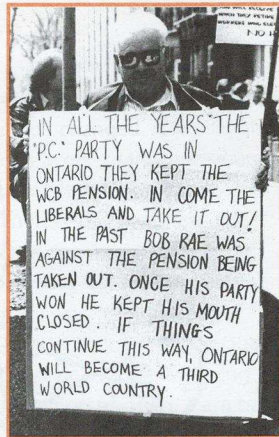 WILL RECEIVE
WHEN THEY RETIRE
WORKERS WILL
NO
IN ALL THE YEARS THE
"P.C." PARTY WAS IN
ONTARIO THEY KEPT THE
WCB PENSION. IN COME THE
LIBERALS AND TAKE IT OUT!
IN THE PAST BOB RAE WAS
AGAINST THE PENSION BEING
TAKEN OUT. ONCE HIS PARTY
WON HE KEPT HIS MOUTH
CLOSED. IF THINGS
CONTINUE THIS WAY, ONTARIO
WILL BECOME A THIRD
WORLD COUNTRY.